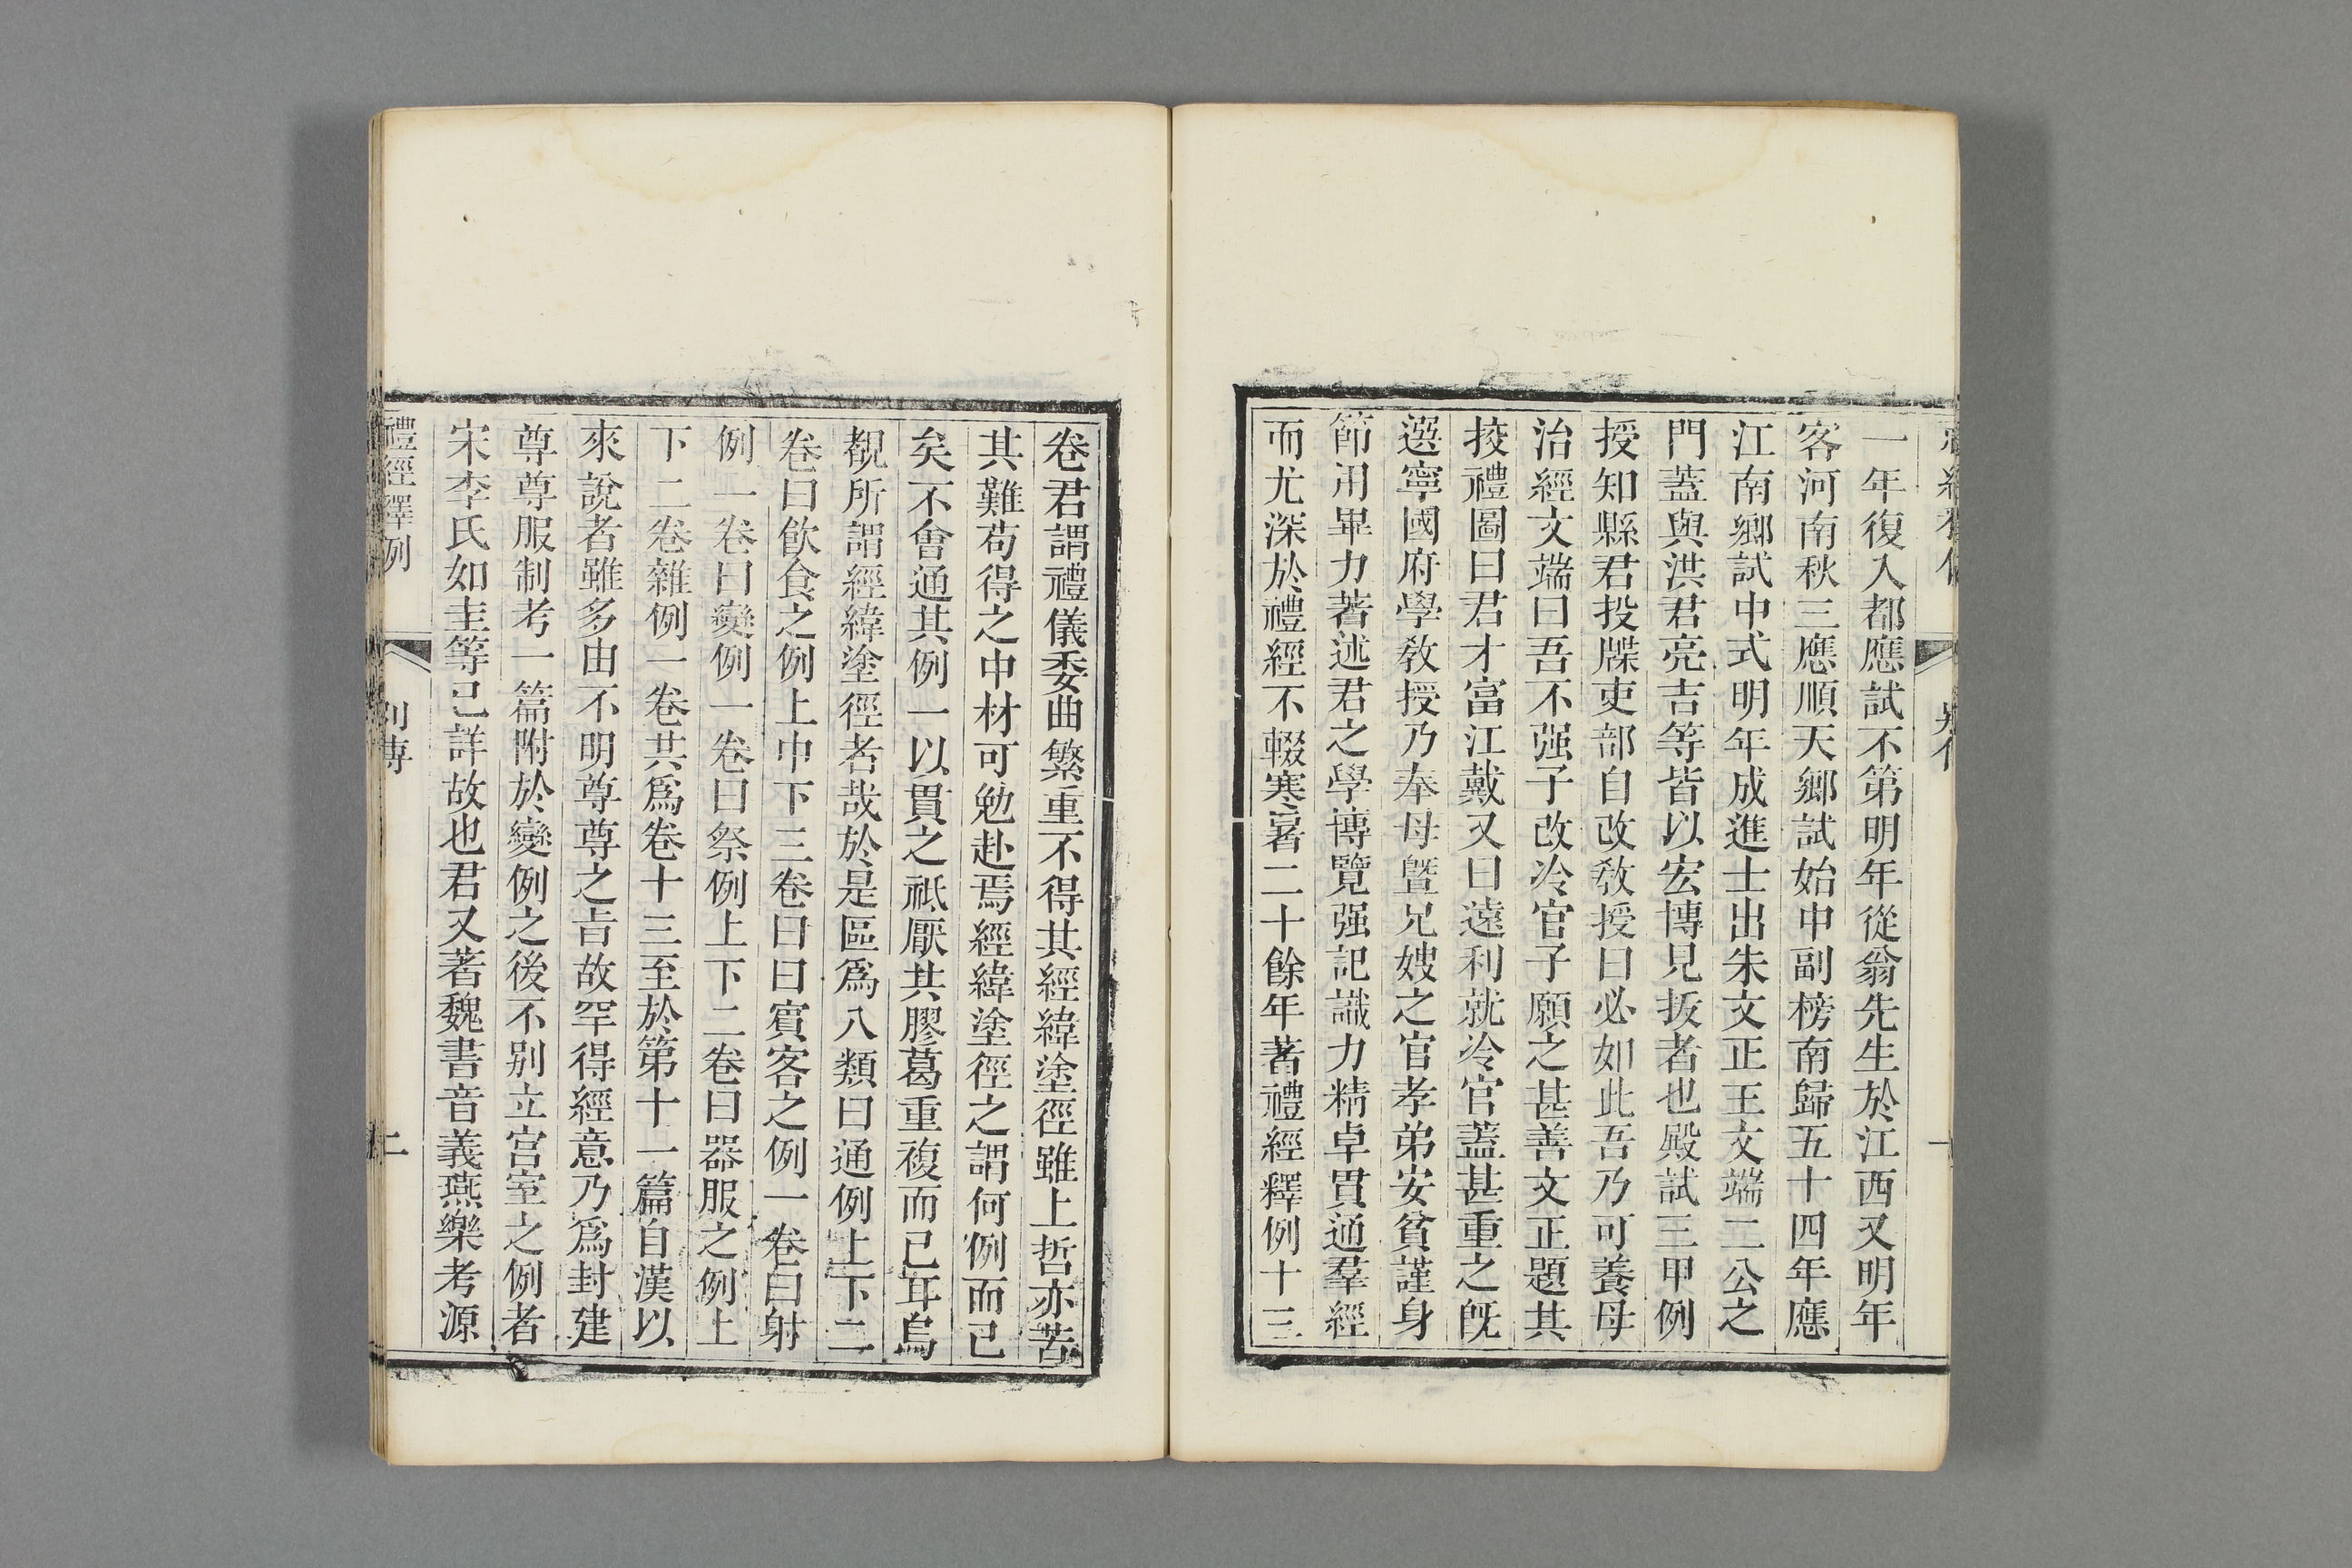 一年復入都應試不第明年從翁先生於江西又明年
客河南秋三應順天鄉試始中副榜南歸五十四年應
江南鄉試中式明年成進士出朱文正王文端二公之
門蓋與洪君亮吉等皆以宏博見拔者也殿試三甲例
授知縣君投牒吏部自改教授曰必如此吾乃可養母
治經文端曰吾不强子改冷官子願之甚善文正題其
挍禮圖曰君才富江戴又曰遠利就冷官蓋甚重之旣
選寧國府學教授乃奉母曁兄嫂之官孝弟安貧謹身
節用畢力著述君之學博覽强記識力精卓貫通羣經
而尤深於禮經不輟寒暑二十餘年著禮經釋例十三
卷君謂禮儀委曲繁重不得其經緯塗徑雖上哲亦苦
其難苟得之中材可勉赴焉經緯塗徑之謂何例而已
矣不會通其例一以貫之祇厭其膠葛重複而已耳烏
覩所謂經緯塗徑者哉於是區爲八類曰通例上下二
卷曰飮食之例上中下三卷曰曰賓客之例一卷曰射
例一卷曰變例一卷曰祭例上下二卷曰器服之例上
下二卷雜例一卷共爲卷十三至於第十一篇自漢以
來說者雖多由不明尊尊之旨故罕得經意乃爲封建
尊尊服制考一篇附於變例之後不别立宫室之例者
宋李氏如圭等已詳故也君又著魏書音義燕樂考源
禮經釋例
別傳
二